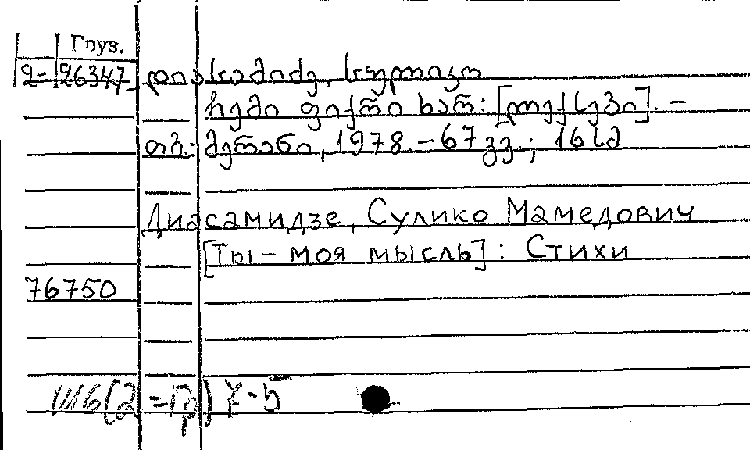 Груз.
2-26347 დიასამიძე, სულიკო
ჩემი ფიქრი ხარ: [ლექსები]. –
თბ.: მერანი, 1978. – 67 გვ.; 16 სმ
Диасамидзе, Сулико Мамедович
[Ты – моя мысль] : Стихи
76750
Ш6(2=Гр)7-5